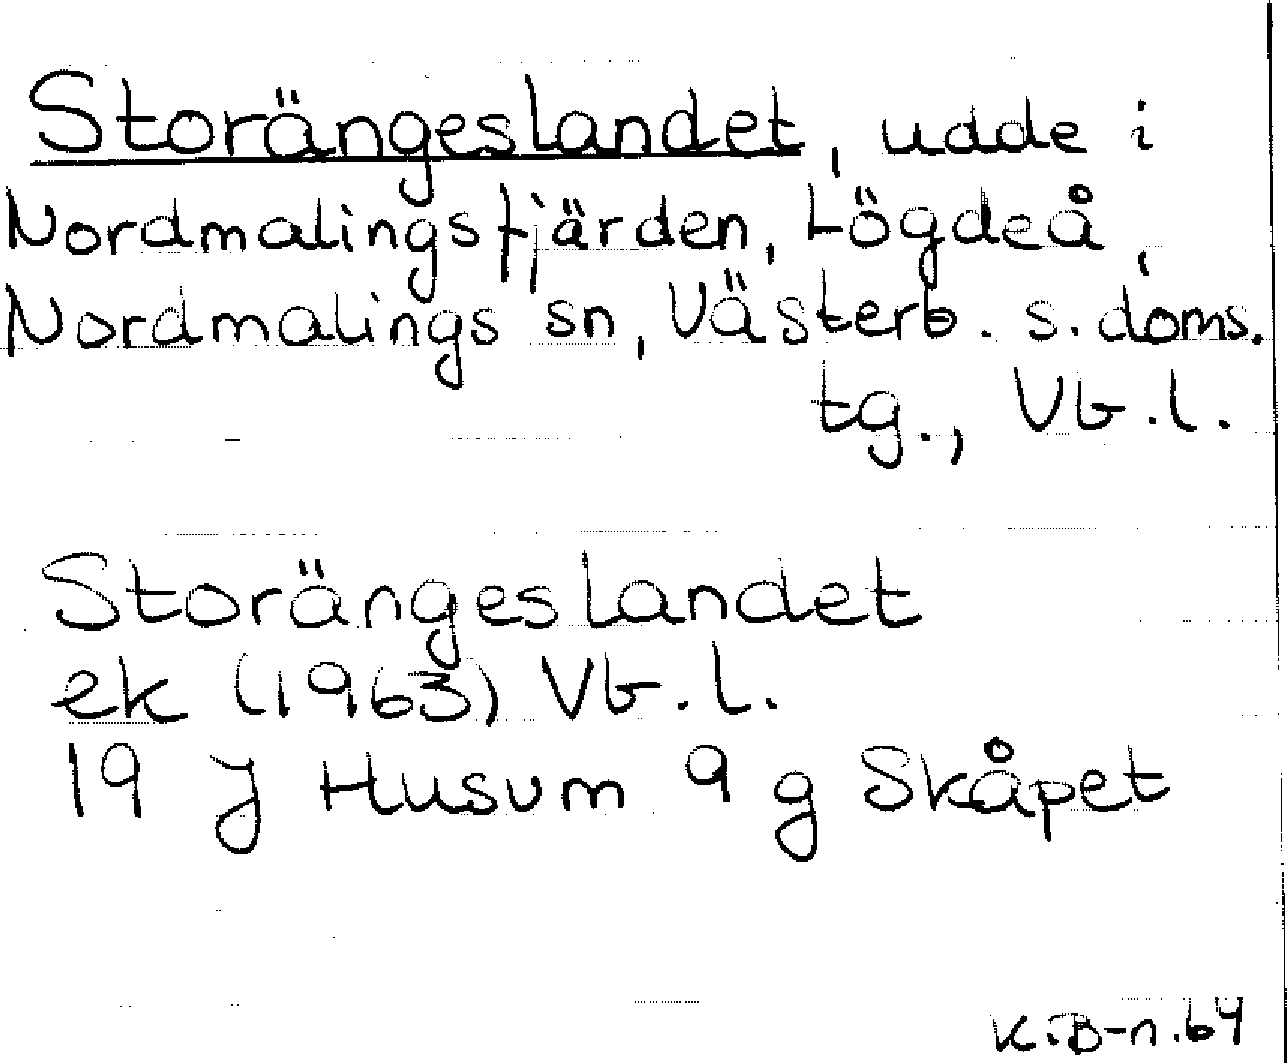 Storängeslandet, udde i
Nordmalingsfjärden, Lögdeå,
Nordmalings sn, Västerb. s. doms.
tg., Vb.l.
Storängeslandet
ek (1963) Vb.l.
19 J Husum 9 g Skåpet
K.B-n.64